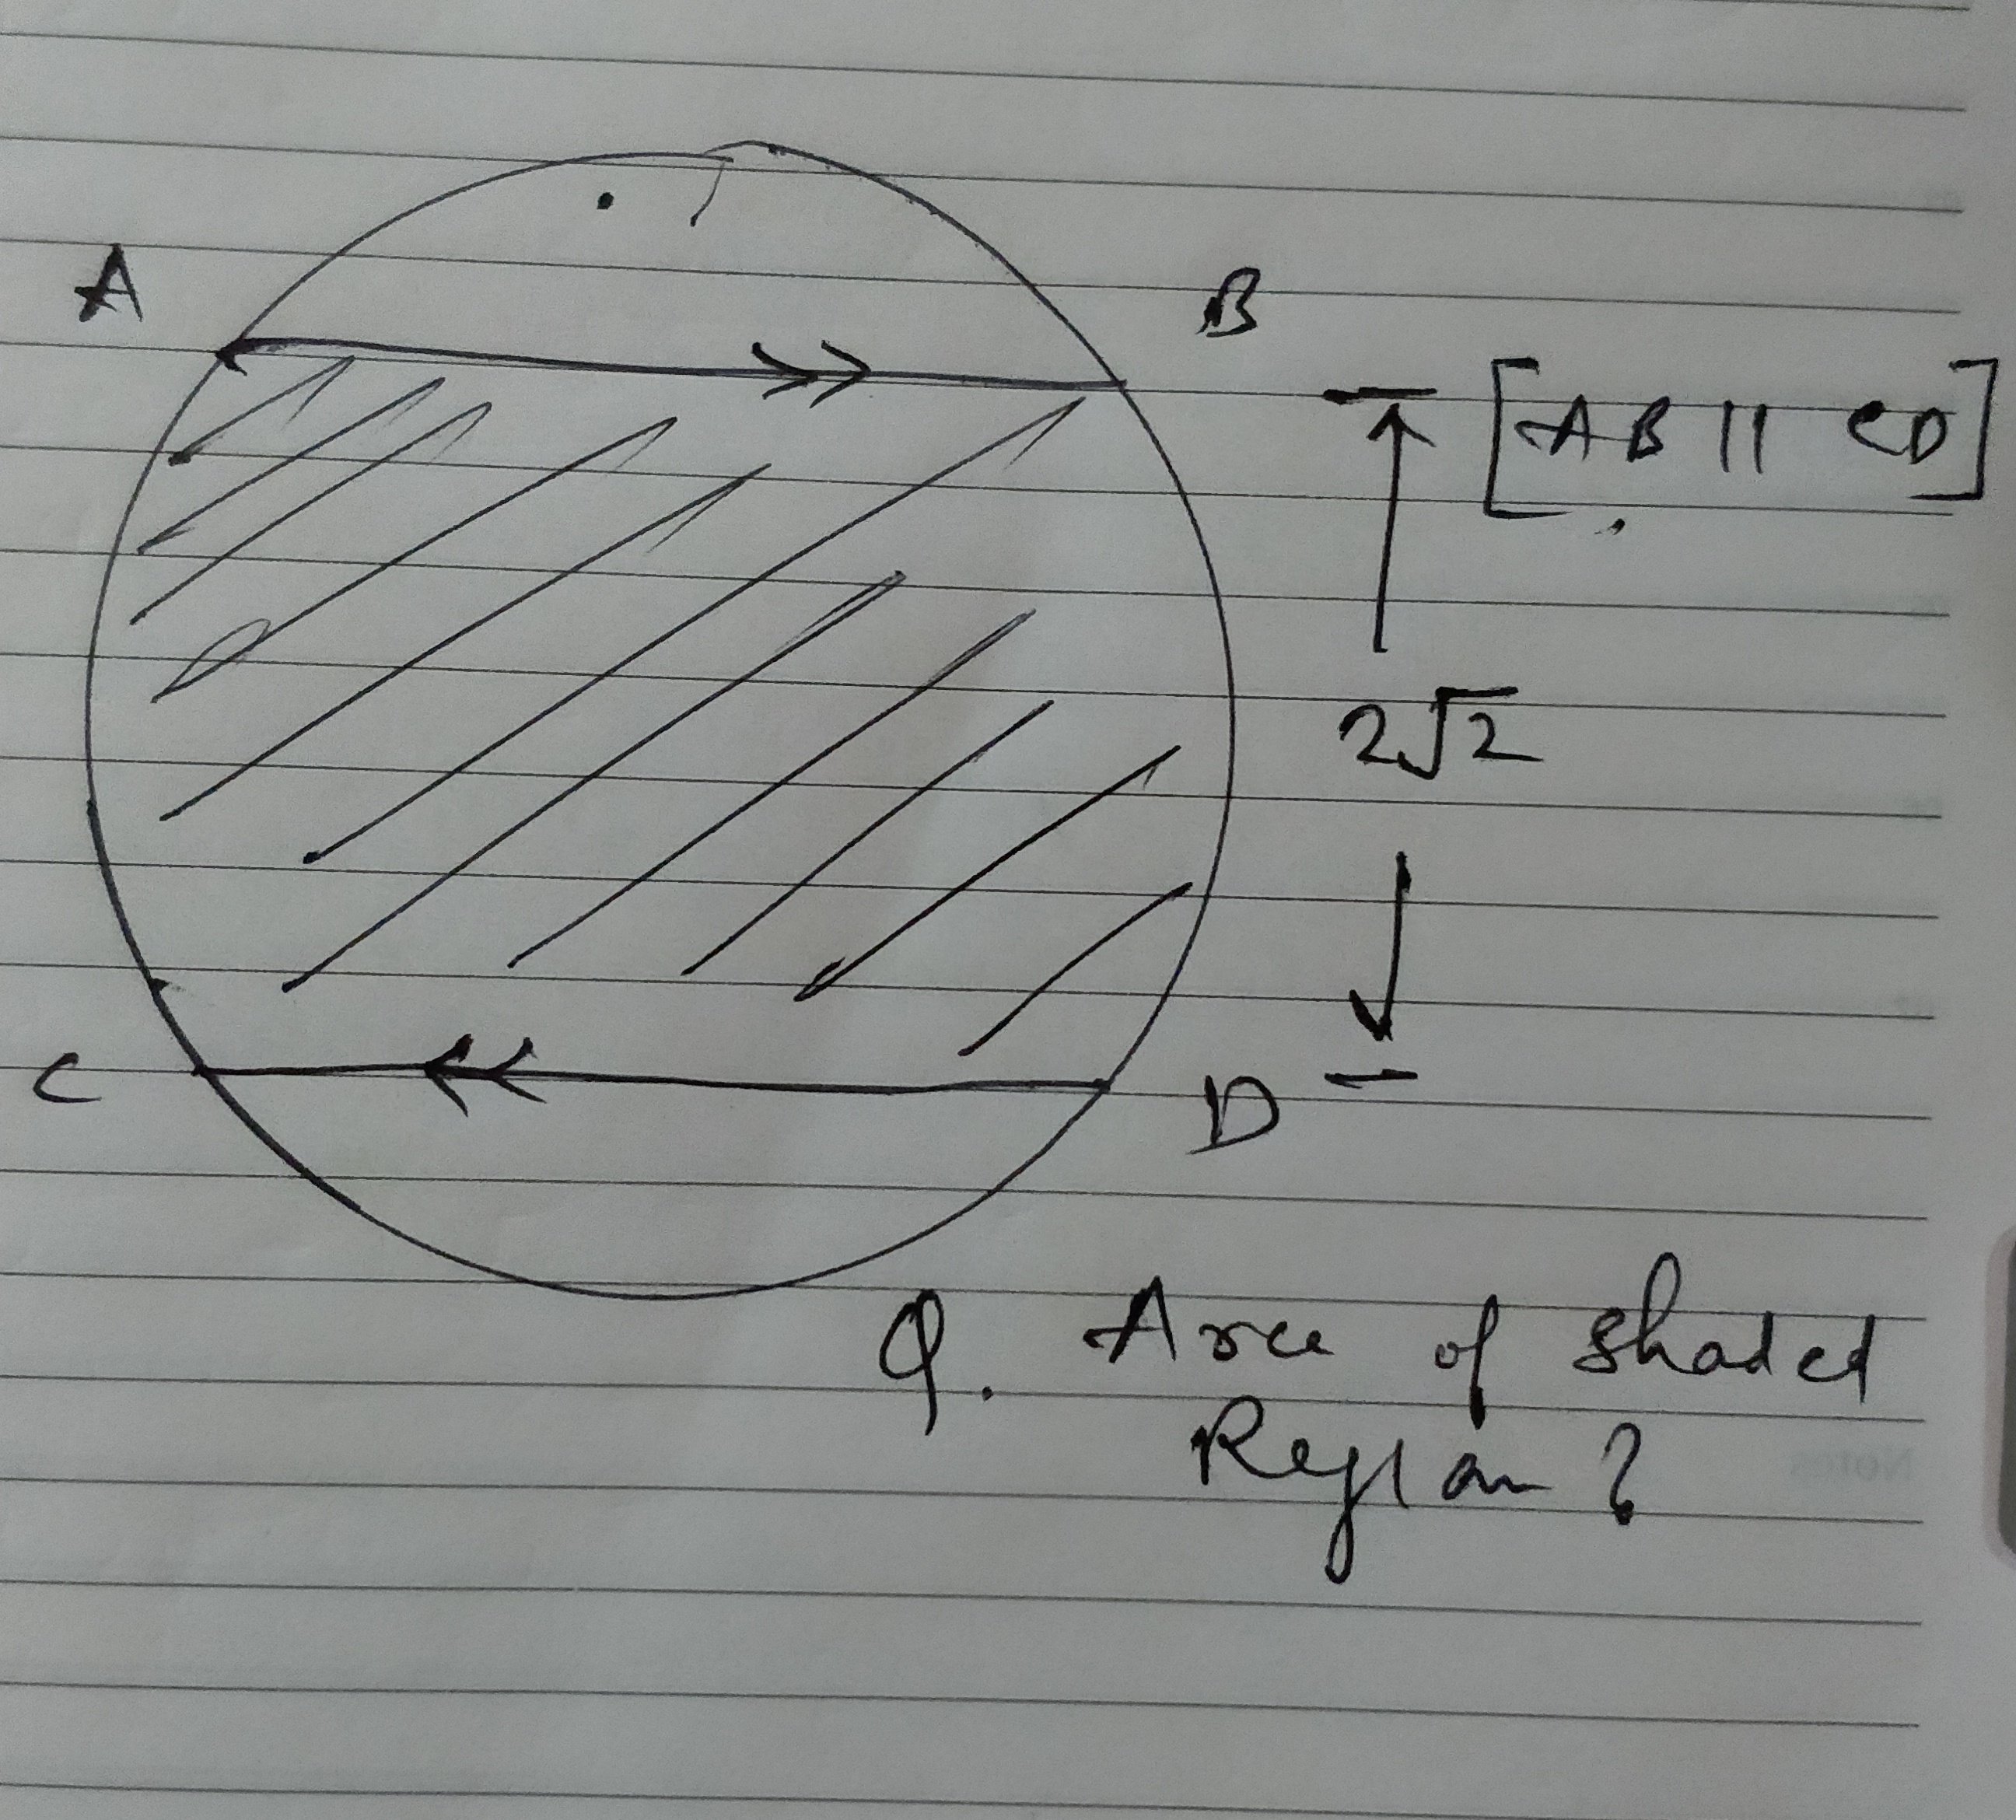 A
B
[AB || CD]
2√2
C
D
Q. Area of shaded
Region?